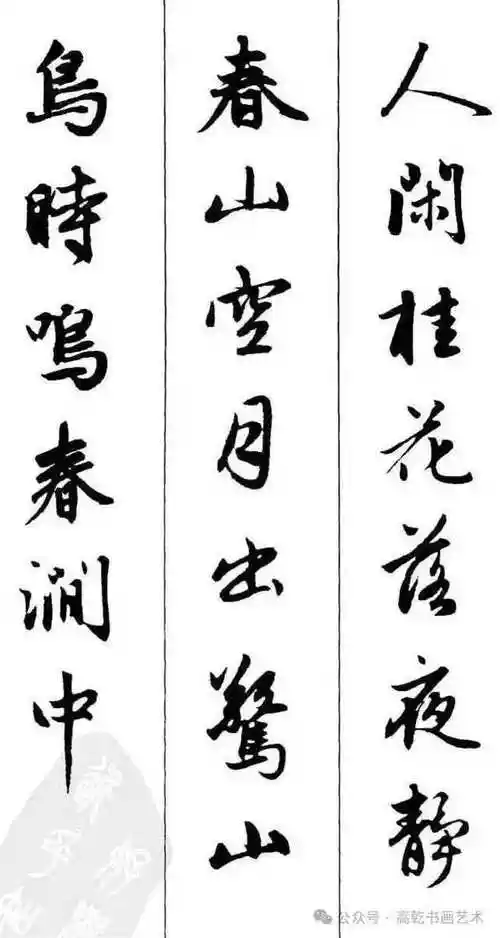 人閑桂花落夜靜
春山空月出驚山
鳥時鳴春澗中
公众号·高乾书画艺术